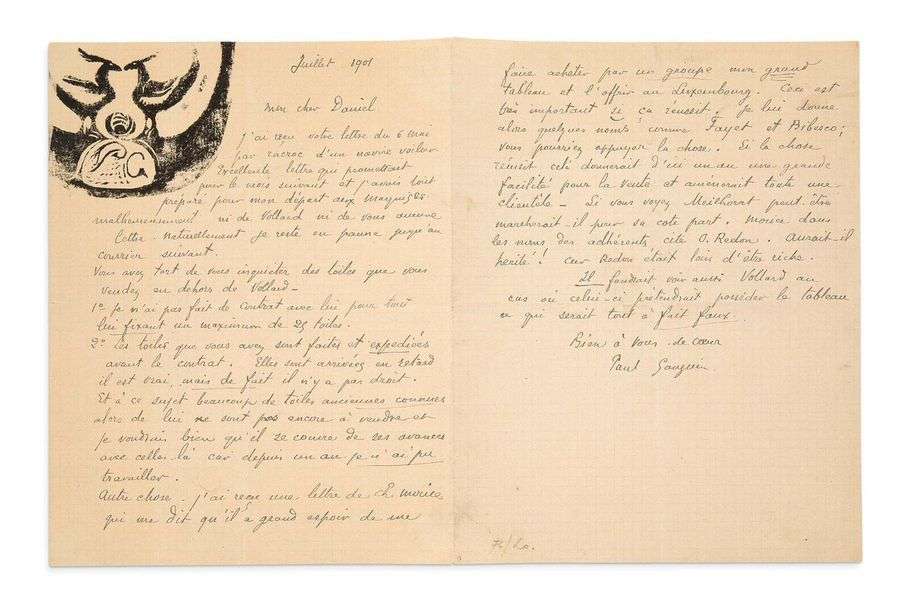 PG
Juillet 1901
mon cher Daniel
J'ai reçu votre lettre du 6 mai
par raccroc d'un navire voilier
Excellente lettre qui promettait
pour le mois suivant et j'avais tout
préparé pour mon départ aux Marquises
malheureusement ni de Vollard ni de vous aucune
lettre. Naturellement je reste en panne jusqu'au
courrier suivant.
Vous avez tort de vous inquiéter des toiles que vous
vendez en dehors de Vollard —
1º Je n'ai pas fait de contrat avec lui pour tout
lui fixant un maximum de 25 toiles.
2º les toiles que vous avez sont faites et expédiées
avant le contrat. Elles sont arrivées en retard
il est vrai, mais de fait il n'y a pas droit.
Et à ce sujet beaucoup de toiles anciennes connues
alors de lui ne sont pas encore à vendre et
je voudrais bien qu'il se couvre de ses avances
avec celles là car depuis un an je n'ai pu
travailler.
Autre chose. J'ai reçu une lettre de Ch morice
qui me dit qu'il a grand espoir de me
faire acheter par un groupe mon grand
tableau et l'offrir au Luxembourg. Ceci est
très important si ça réussit. Je lui donne
alors quelques noms comme Fayet et Bibesco;
vous pourriez appuyer la chose. Si la chose
réussit celà donnerait d'ici un an une grande
facilité pour la vente et amènerait toute une
clientèle — Si vous voyez Meilhorat peut-être
marcherait il pour sa cote part. Morice dans
les noms des adhérents cite O. Redon. Aurait-il
hérité! car Redon était loin d'être riche.
Il faudrait voir aussi Vollard au
cas où celui-ci prétendrait posséder le tableau
ce qui serait tout à fait faux.
Bien à vous de cœur
Paul Gauguin